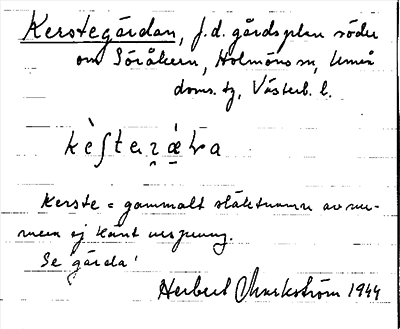 Kerstegärdan, f.d. gårdsplan söder
om Söråkern, Holmöns sn, Umeå
doms. tg, Västerb. l.
kèʃteʀæ̀tra
Kerste = gammalt släktnamn av nu-
mera ej känt ursprung.
Se gärda!
Herbert Markström 1944